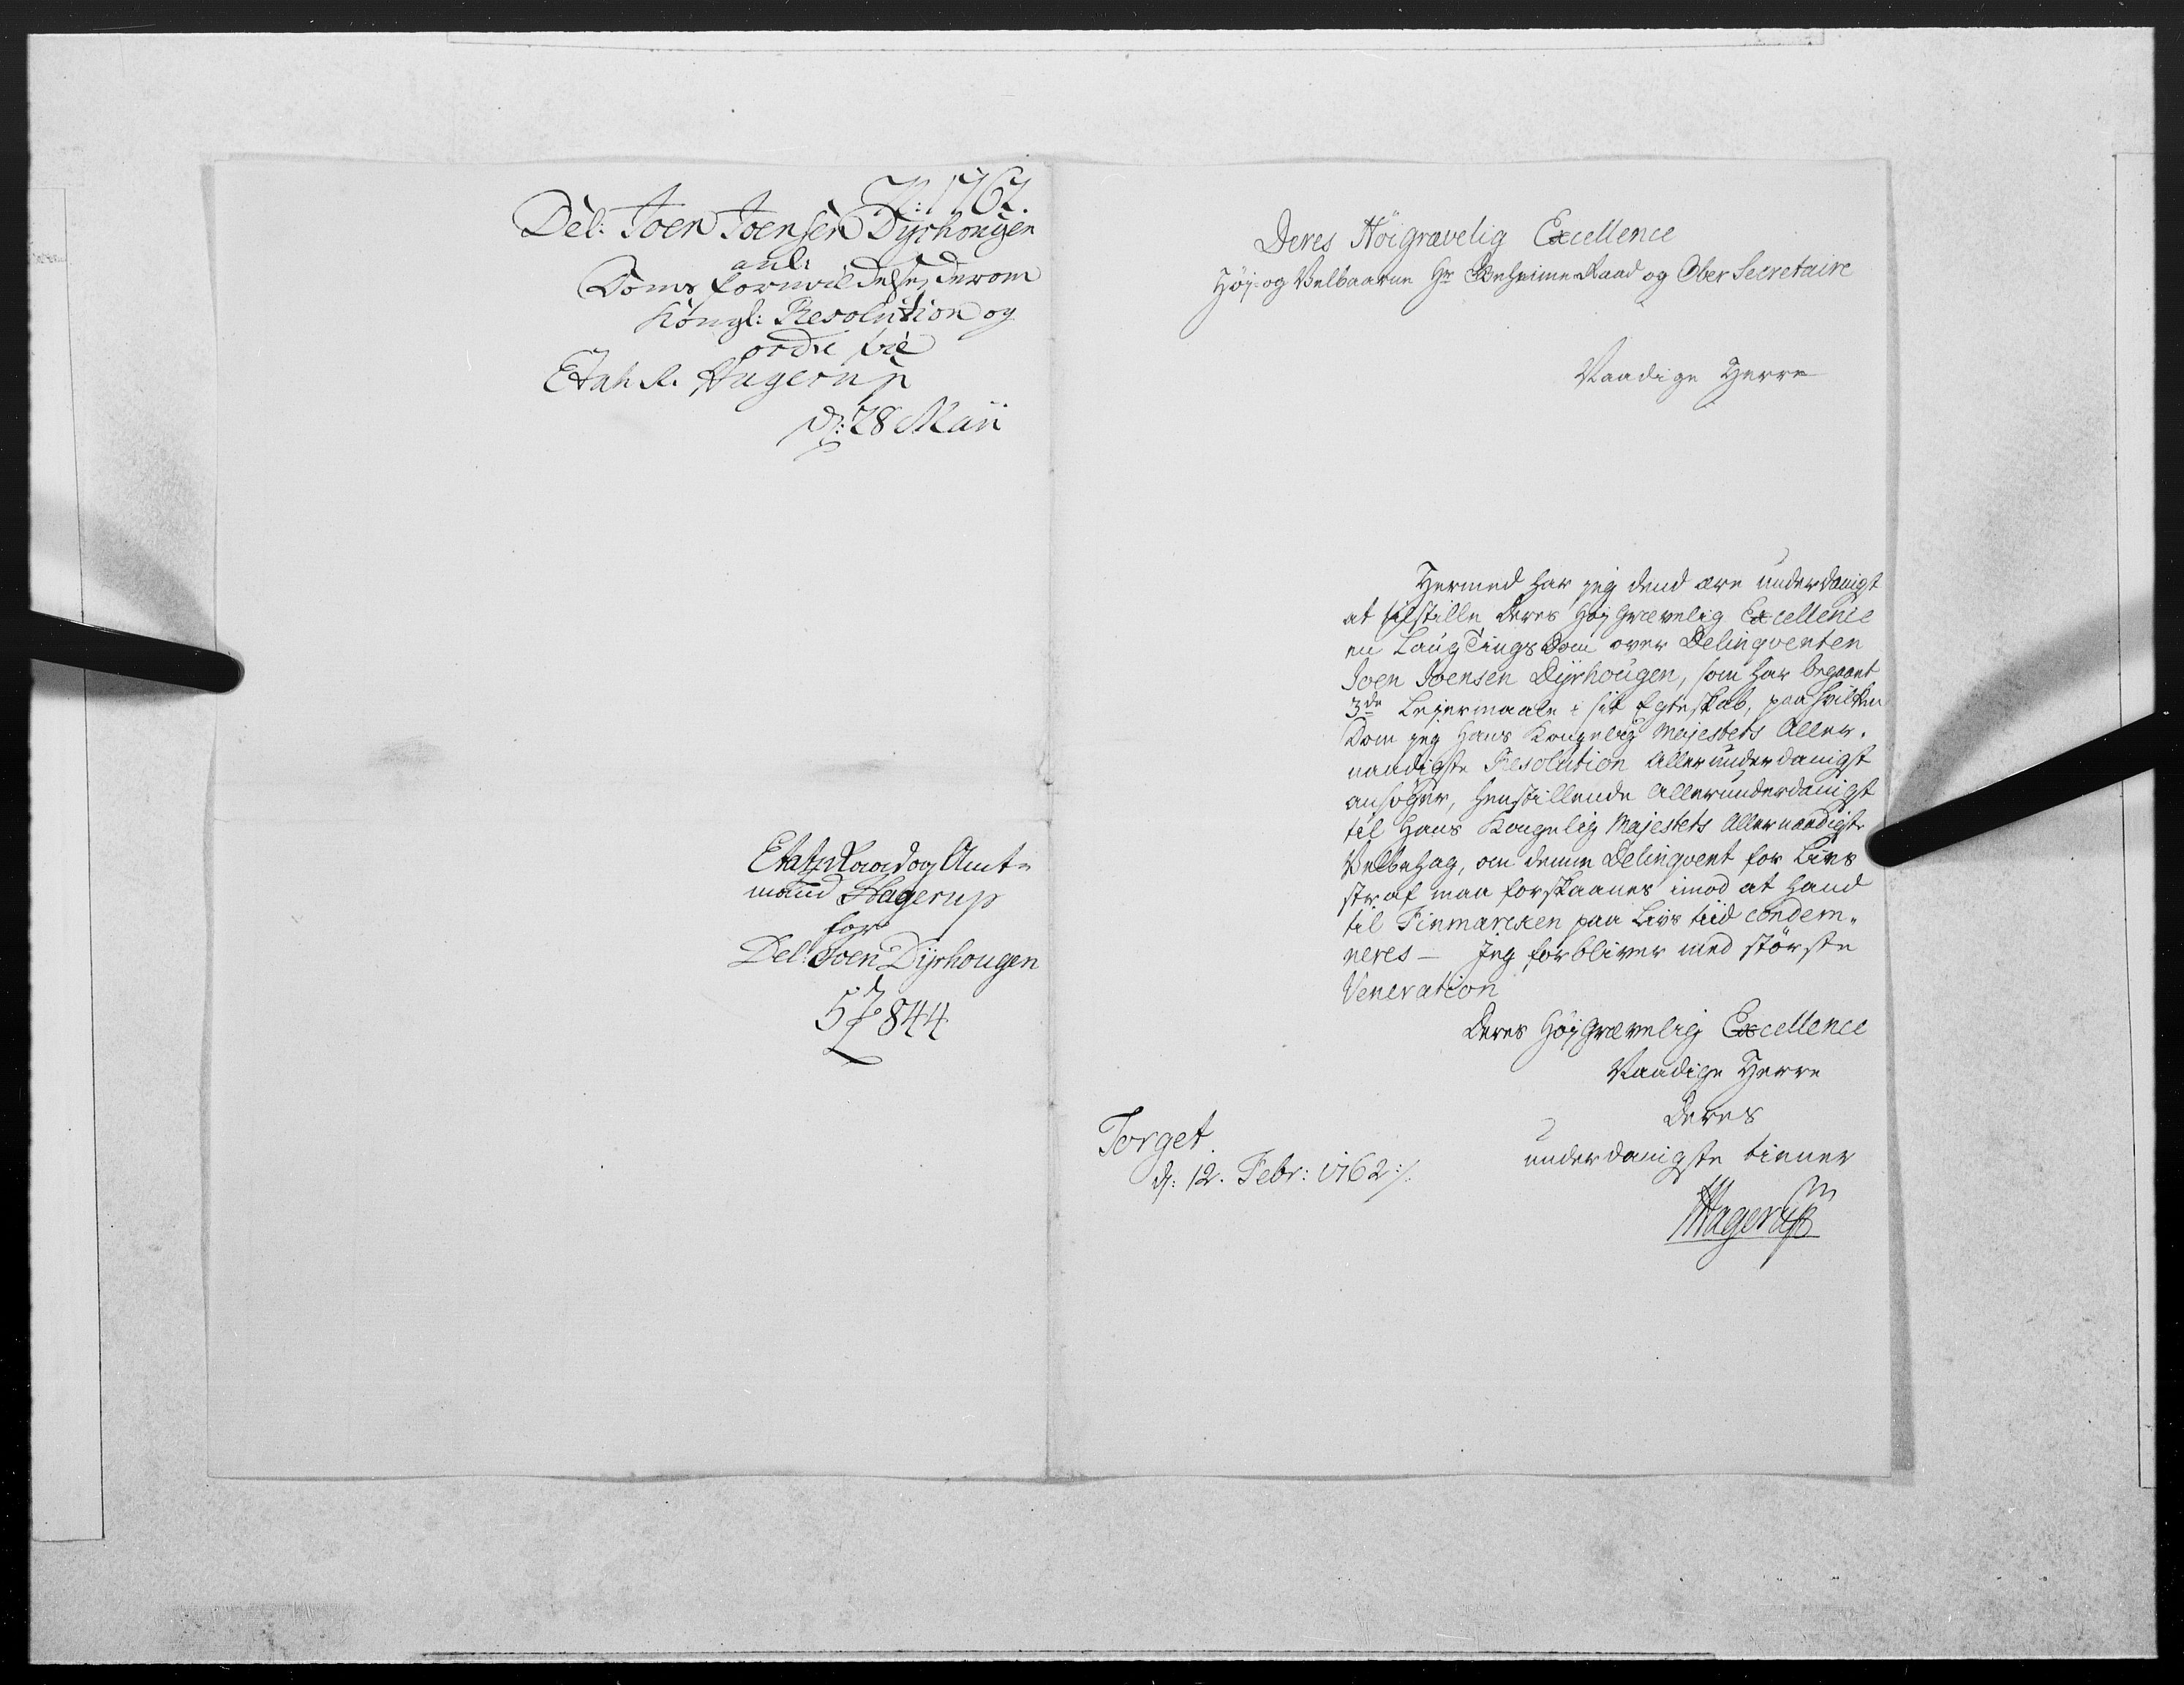 N: 1762.
Del: Joen Joensen Dyrhougen
anl:
Doms formildelse, derom
Kongl: Resolution og
ordre vie
Etats R. Hagerup
d: 28 Maii
Etatz Raad og Amt-
mand Hagerup
for
Del: Joen Dyrhougen
57844
Deres Höigrævelig Excellence
Høj- og Velbaarne Hr Geheime Raad og Ober Secretaire
Naadige Herre
Hermed har jeg dend ære underdanigst
at tilstille Deres Høj Grævelig Excellence
en Laug Tings Dom over Delinqventen
Joen Joensen Dyrhougen, som har begaaet
3de Lejermaale i sit Egteskab, paa hvilken
Dom jeg Hans Kongelig Majestets Aller-
naadigste Resolution Allerunderdanigst
ansøger, henstillende Allerunderdanigst
til Hans Kongelig Majestets Allernaadigste
Velbehag, om denne Delinqvent for Livs
straf maa forskaanes imod at hand
til Finmarcken paa Livs tiid condem-
neres - Jeg forbliver med største
Veneration
Deres Høj Grævelig Excellence
Naadige Herre
Deres
underdanigste tiener
Hagerup
Torget.
d: 12. Febr: 1762 :/.